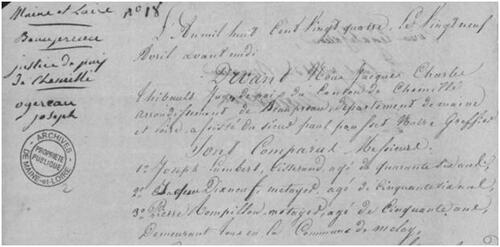 Maine et Loire
Beaupreau
justice de paix
de Chemillé
ogereau
joseph
No 18
ARCHIVES DE MAINE-et-LOIRE
PROPRIÉTÉ PUBLIQUE
L'An mil huit Cent Vingt quatre, le Vingt neuf
Avril avant midi
Devant Nous Jacques Charles
Thibault Juge de paix du Canton de Chemillé
arrondissement de Beaupreau, departement de maine
et loire, assisté du sieur paul Greffier
Sont Comparus Messieurs
1o Joseph humbert, tisserand, agé de quarante six ans,
2o Jacques metayer, agé de Cinquante six ans
3o Pierre Compillon, metayer, agé de Cinquante ans,
Demeurant tous en la Commune de melay,